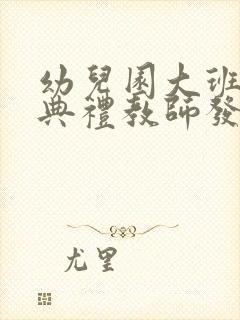 幼兒園大班
典禮教師發
尤里